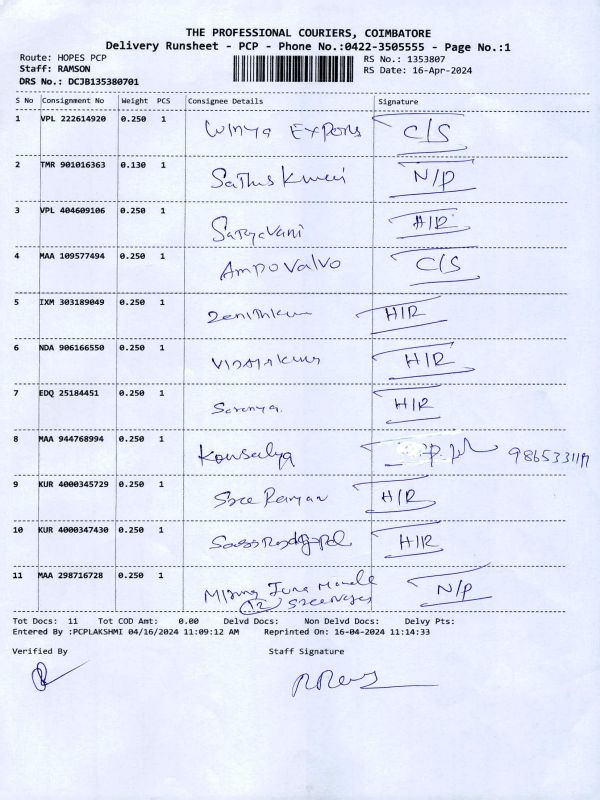 THE PROFESSIONAL COURIERS, COIMBATORE
Delivery Runsheet - PCP - Phone No.:0422-3505555 - Page No.:1
Route: HOPES PCP RS No.: 1353807
Staff: RAMSON RS Date: 16-Apr-2024
DRS No.: DCJB135380701
S No Consignment No Weight PCS Consignee Details Signature
1 VPL 222614920 0.250 1 C/S
2 TMR 901016363 0.130 1 N/P
3 VPL 404609106 0.250 1 Satyavani H/R
4 MAA 109577494 0.250 1 Ampo Valvo C/S
5 IXM 303189049 0.250 1 H/R
6 NDA 906166550 0.250 1 H/R
7 EDQ 25184451 0.250 1 Saranya. H/R
8 MAA 944768994 0.250 1 Kousalya
9 KUR 4000345729 0.250 1 Sree H/R
10 KUR 4000347430 0.250 1 H/R
11 MAA 298716728 0.250 1 N/P
12
Tot Docs: 11 Tot COD Amt: 0.00 Delvd Docs: Non Delvd Docs: Delvy Pts:
Entered By :PCPLAKSHMI 04/16/2024 11:09:12 AM Reprinted On: 16-04-2024 11:14:33
Verified By Staff Signature